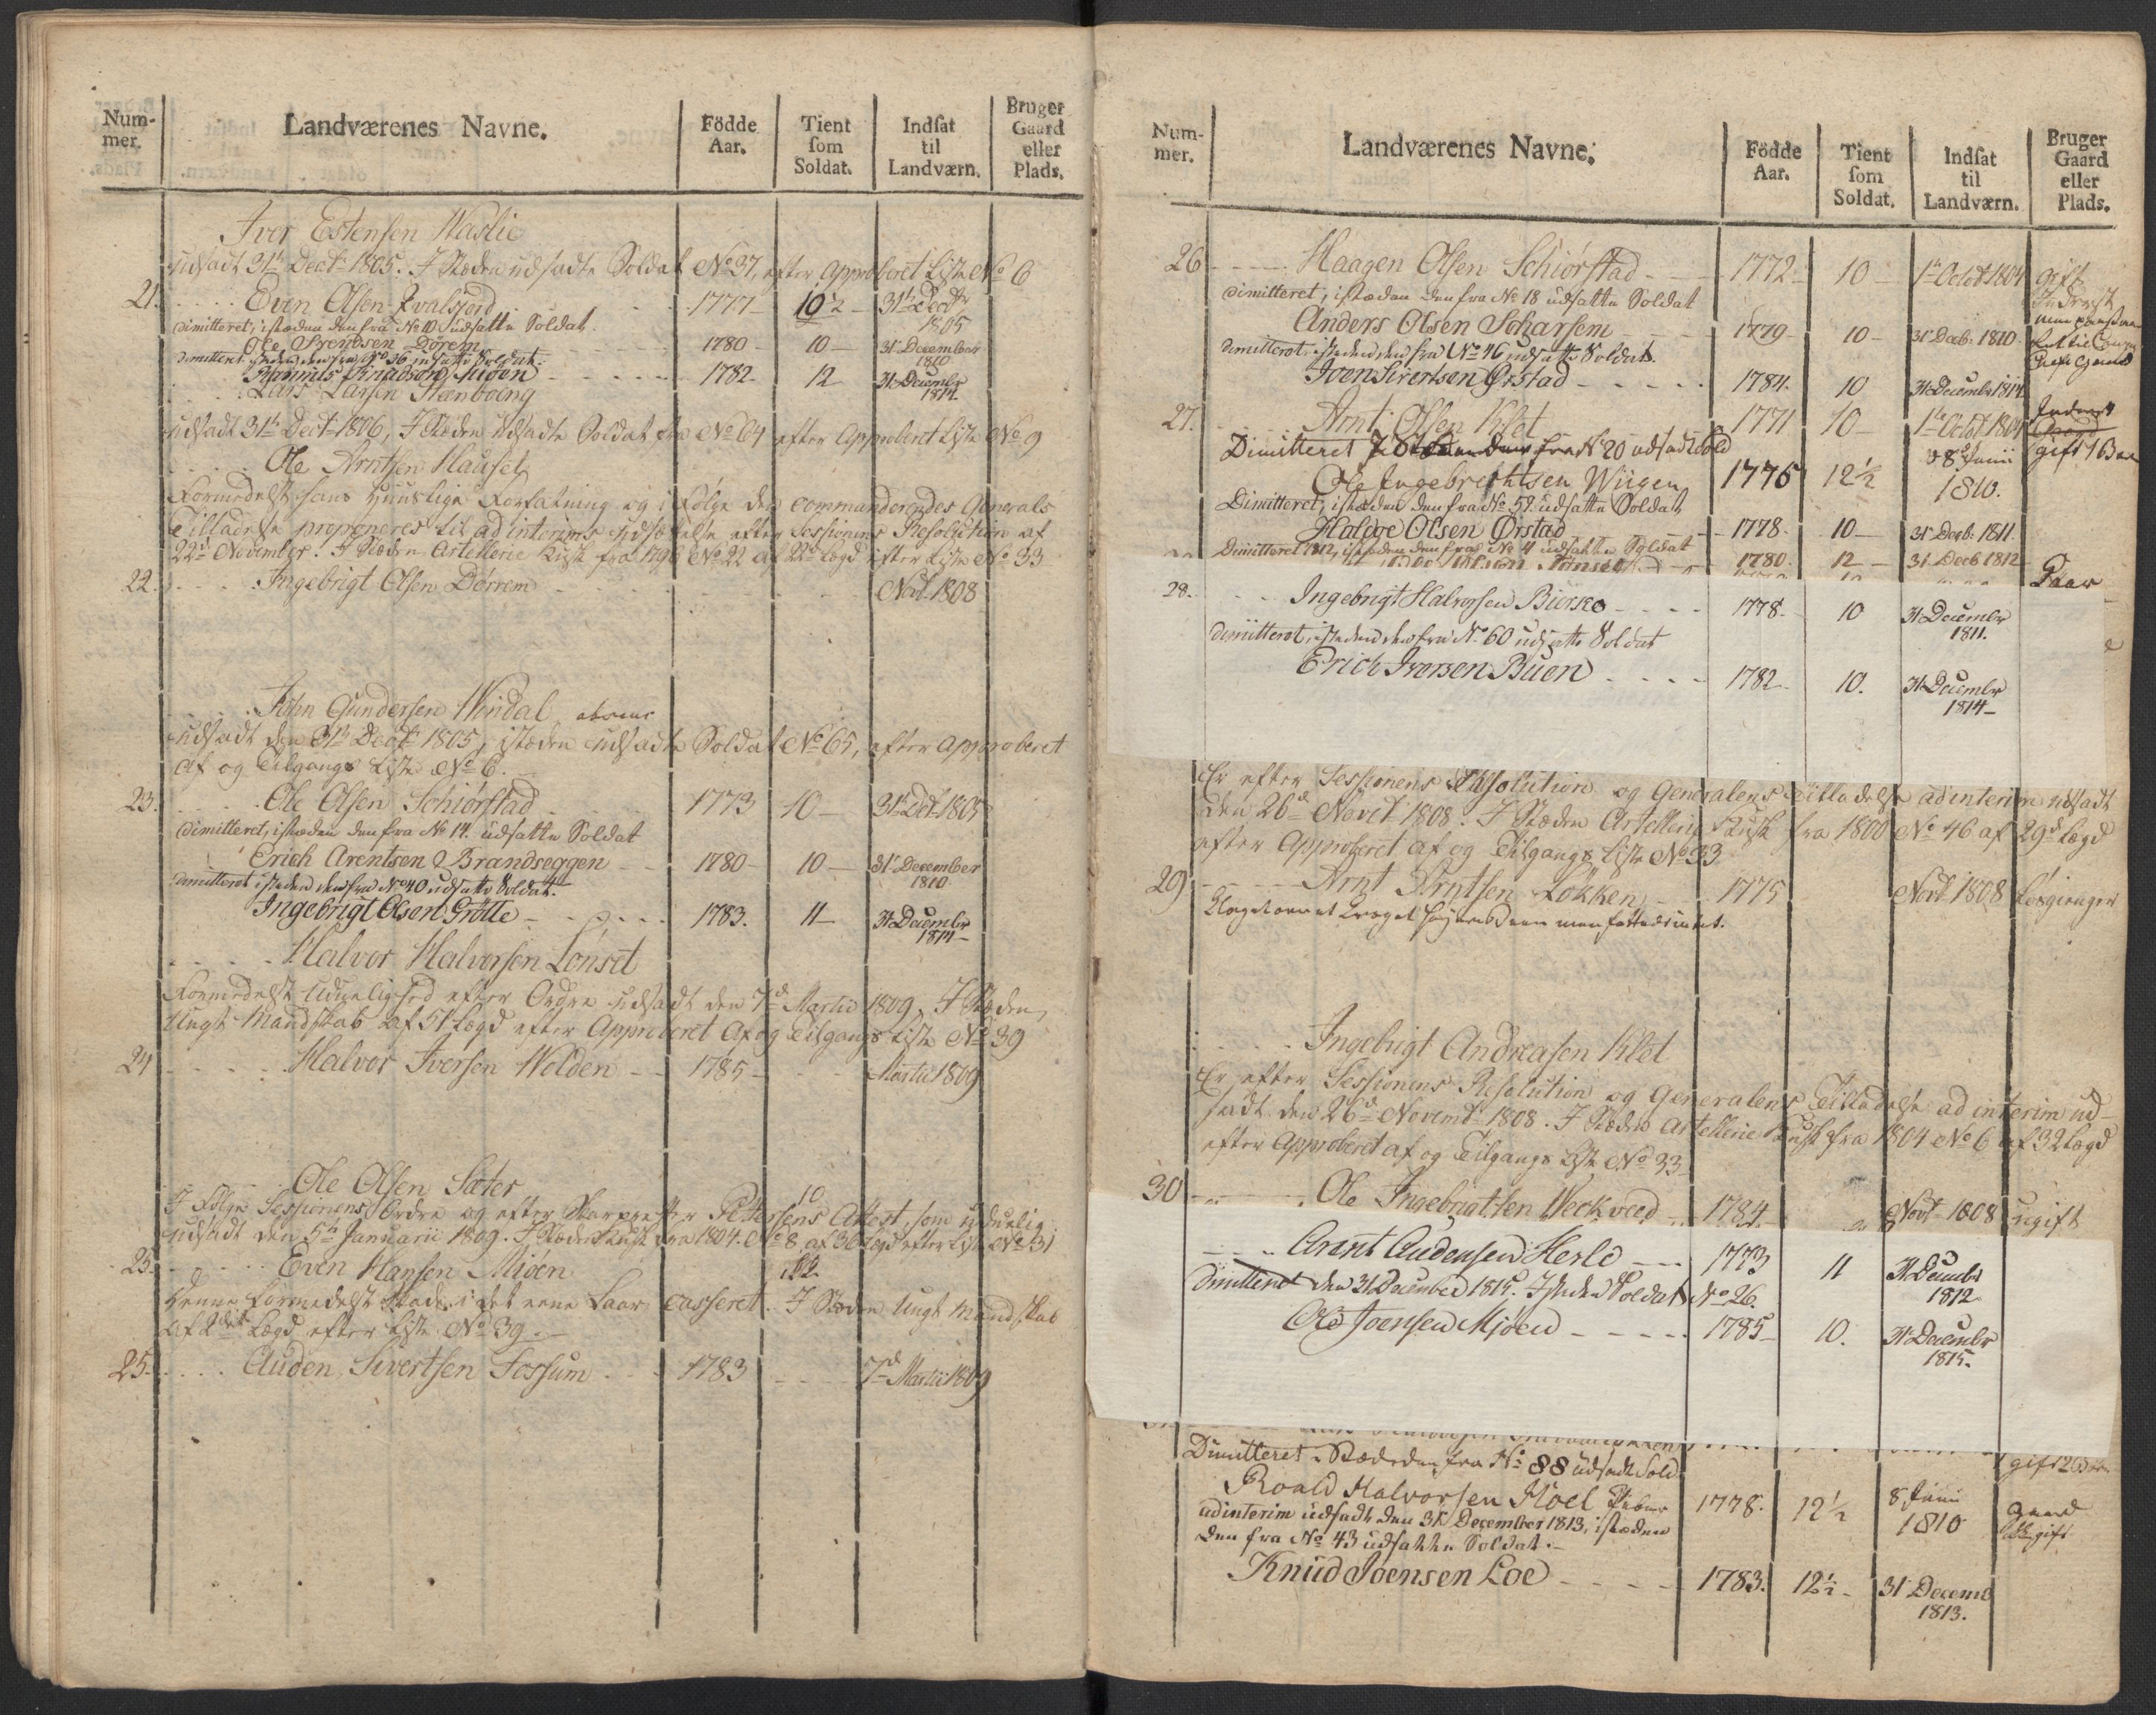 Num-
mer.
Landværenes Navne.
Födde
Aar.
Tient
som
Soldat.
Indsat
til
Landværn.
Bruger
Gaard
eller
Plads.
Iver Estensen Haslie
udsadt 31t Dect 1805. I Stæden udsadte Soldat No 37, efter Approberet Liste No 6
21. Even Olsen Kvalsjord 1777 10 1/2 31t Dect 1805
dimitteret, istæden den fra No 10 udsatte Soldat.
Ole Svendsen Dörem 1780 10 31t December 1810
dimitteret istæden den fra No 36 udsatte Soldat.
Knudsön 1782 12 31 Decembr 1814
Lars Larsen Steenboing
udsadt 31t Dect 1806, I Stæden udsadte Soldat fra No 64 efter Approberet Liste No 9
Ole Arntsen Hauset
Formedelst hans huuslige Forfatning og i Følge den commanderendes Generals
Tilladelse proponeres til ad interims udsættelse efter Sessionens Resolution af
22d November. I Stæden Artellerie Kusk fra 1798 No 22 af 22d Lægd efter Liste No 33
22. Ingebrigt Olsen Dörrem Novt 1808
John Gundersen Windal
udsadt den 31t Dect 1805, istæden udsadte Soldat No 65, efter Approberet
Af og Tilgangs Liste No 6.
23. Ole Olsen Schiörstad 1773 10 31t Dect 1805
dimitteret, istæden den fra No 14. udsatte Soldat
Erich Arentsen Brandseggen 1780 10 31t December 1810
dimitteret isteden den fra No 40 udsatte Soldat.
Ingebrigt Olsen Grötte 1783. 11 31 Decembr 1814
Halvor Halvorsen Lönset
Formedelst Uduelighed efter Ordre udsadt den 7d Martii 1809. I Stæden,
Ungt Mandskab af 51 Lægd efter Approberet Af og Tilgangs Liste No 39
24 Halvor Iversen Wolden 1785 Martii 1809
Ole Olsen Sæter 10
I Følge Sessionens Ordre og efter Petersens Attest, som uduelig
udsadt den 5t Januarii 1809. I Stæden Kusk fra 1804. No 8 af 36 Lægd efter Liste No 31
25. Even Hansen Mjöen
Henne formedelst Skade i det eene Laar casseret. I Stæden Ungt Mandskab
af 2det Lægd efter Liste No 39.
25. Auden Sivertsen Fossum 1783 7d Martii 1809
Num-
mer.
Landværenes Navne.
Födde
Aar.
Tient
som
Soldat.
Indsat
til
Landværn.
Bruger
Gaard
eller
Plads.
26 Haagen Olsen Schiörstad 1772 10 1t Octobr 1804 gift
dimitteret, istæden den fra No 18 udsatte Soldat
Anders Olsen Scharsem 1779 10 31t Decb: 1810
dimitteret, isteden den fra No 46 udsatte Soldat.
Joen Sivertsen Ørstad 1784. 10 31 Decembr 1814
27. Arnt Olsen Klet 1771 10 1te Octobr 1804
Dimitteret fra No 20 udsadt Sold
Ole Ingebrechtsen Wiigen 1775 12 1/2 8 Junii 1810. gift 1 Barn
Dimitteret, istæden den fra No 52 udsatte Soldat
Haldoe Olsen Ørstad 1778. 10 31t Decb: 1811.
Dimitteret 1812, isteden den fra No 4 udsatte Soldat
1780. 12 31 Decb 1812
28. Ingebrigt Halvorsen Biörke 1778. 10 31 Decembr 1811.
dimitteret, isteden den fra No 60 udsatte Soldat
Erich Iversen Buen 1782. 10. 31 Decembr 1814
Er efter Sessionens Resolution og Generalens Tilladelse ad interim udsadt
den 26d Novbt 1808. I Stæden Artellerie Kusk fra 1800 No 46 af 29d Lægd
efter Approberet Af og Tilgangs Liste No 33
29 Arnt Arntsen Løkken 1775 Novt 1808 Løsgienger
Ingebrigt Andreasen Klet
Er efter Sessionens Resolution og Generalens Tilladelse ad interim ud-
sadt den 26d Novembt 1808. I Stæden Artellerie Kusk fra 1804 No 6 af 32 Lægd
efter Approberet af og Tilgangs Liste No 33
30 Ole Ingebrigtsen Weckveed 1784 Novt 1808 ugift
Arent Audensen Herlo 1773 11 31 Decembr 1812
dimitteret den 31 December 1815. Isteden Soldat No 26.
Ole Joensen Mjöen 1785 10. 31 Decembr 1815.
Dimitteret i Stæden den fra No 88 udsadt Sold.
gift 2 Børn
Roald Halvorsen Hoel 1778. 12 1/2 8 Junii 1810 gaard gift
ad interim udsadt den 31t December 1813, istæden
den fra No 43 udsatte Soldat.
Knud Joensen Loe 1783. 12 1/2 31t Decemb 1813.